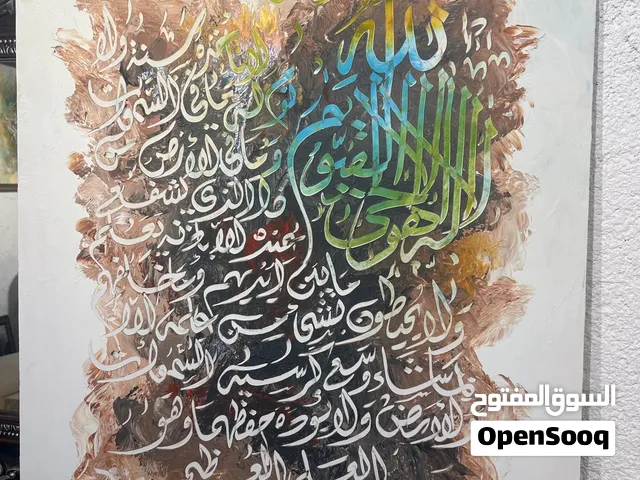 الله
لا إله إلا هو الحي القيوم
لا تأخذه سنة ولا
نوم له ما في السموات
وما في الأرض من
ذا الذي يشفع
عنده إلا بإذنه يعلم
ما بين أيديهم وما خلفهم
ولا يحيطون بشيء من علمه إلا
بما شاء وسع كرسيه السموات
والأرض ولا يؤده حفظهما وهو
العلي العظيم
السوق المفتوح
OpenSooq